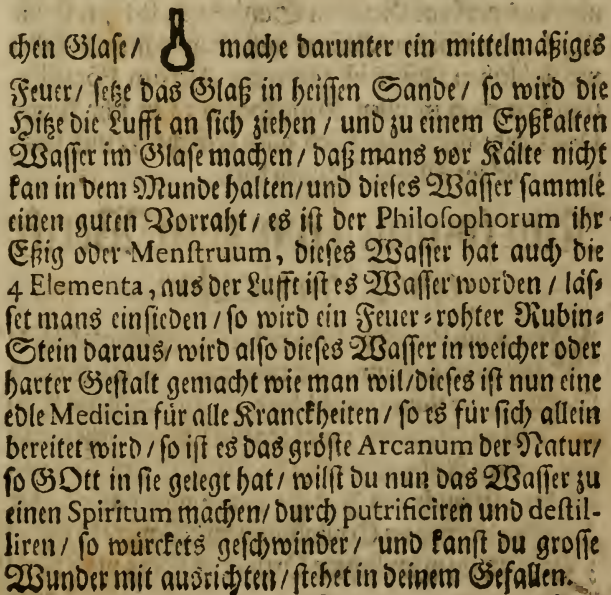 chen Glase/ mache darunter ein mittelmäßiges
Feuer/ setze das Glaß in heissen Sande/ so wird die
Hitze die Lufft an sich ziehen / und zu einem Eyßkalten
Wasser im Glase machen / daß mans vor Kälte nicht
kan in dem Munde halten/ und dieses Wasser sammle
einen guten Vorraht/ es ist der Philosophorum ihr
Eßig oder Menstruum, dieses Wasser hat auch die
4 Elementa, aus der Lufft ist es Wasser worden / läs-
set mans einsieden / so wird ein Feuer-rohter Rubin-
Stein daraus/ wird also dieses Wasser in weicher oder
harter Gestalt gemacht wie man wil/ dieses ist nun eine
edle Medicin für alle Kranckheiten / so es für sich allein
bereitet wird / so ist es das gröste Arcanum der Natur/
so GOtt in sie gelegt hat/ wilst du nun das Wasser zu
einen Spiritum machen/ durch putrificiren und destil-
liren / so würckets geschwinder/ und kanst du grosse
Wunder mit ausrichten/ stehet in deinem Gefallen.